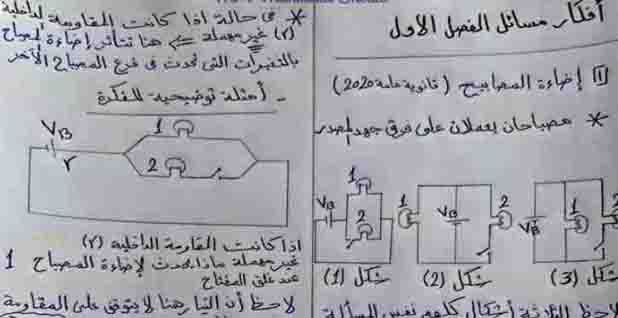 أفكار مسائل الفصل الأول
① إضاءة المصابيح (ثانوية عامة 2020)
* مصباحان يعملان على فرق جهد المصدر
1
V_B
2
شكل (1)
1
V_B
2
شكل (2)
V_B
1
2
شكل (3)
لاحظ الثلاثة أشكال كلهم نفس المسألة
* فى حالة اذا كانت المقاومة الداخلية
(r) غير مهملة هنا تتأثر إضاءة المصباح
بالتغيرات التى تحدث فى فرع المصباح الآخر
- أمثلة توضيحية للفكرة
V_B
r
1
2
اذا كانت المقاومة الداخلية (r)
غير مهملة ماذا يحدث لإضاءة المصباح 1
عند غلق المفتاح
لاحظ أن التيار هنا لا يتوقف على المقاومة